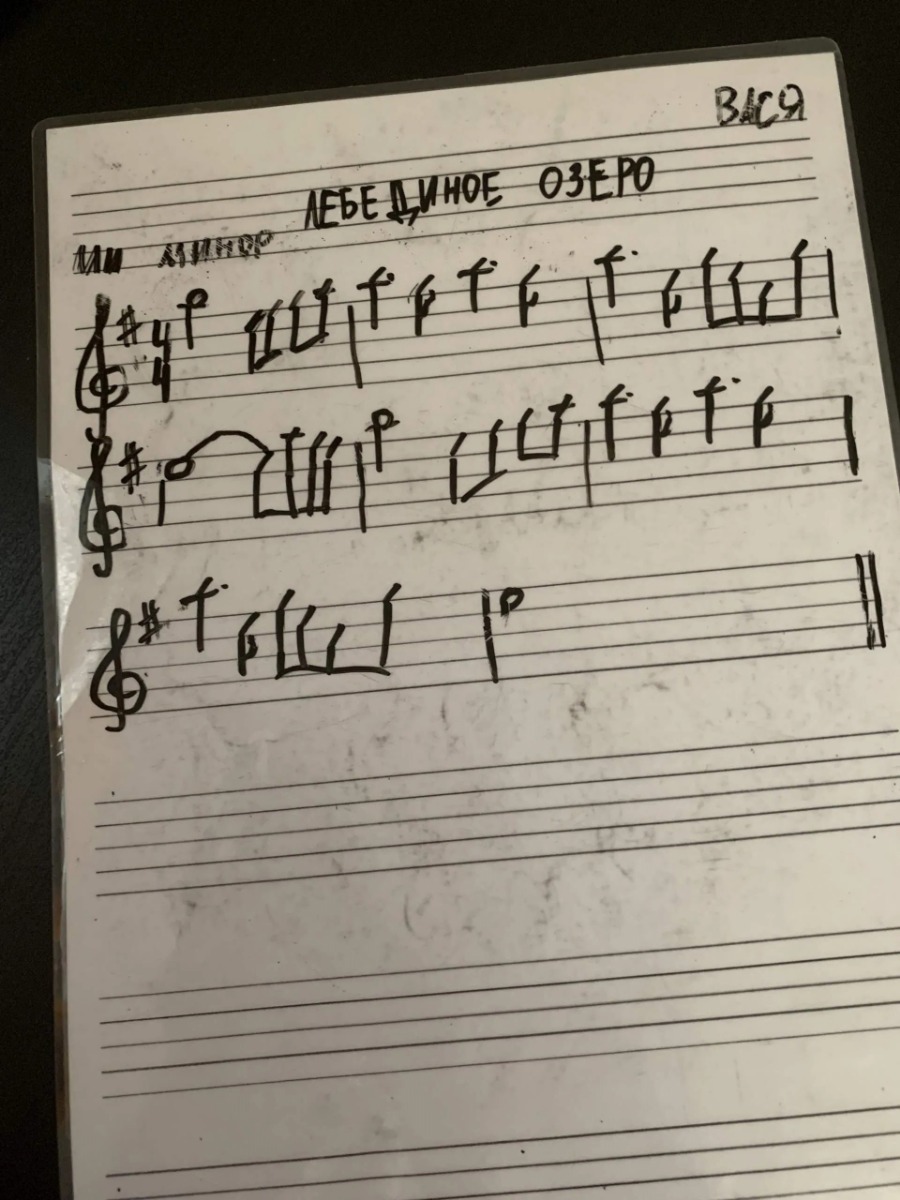 ВАСЯ
ЛЕБЕДИНОЕ ОЗЕРО
МИ МИНОР
4
4